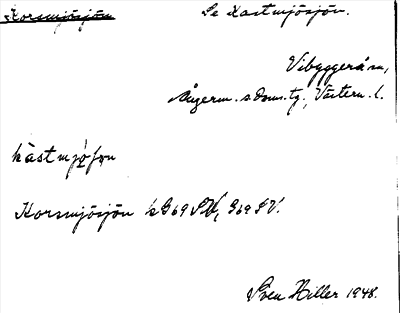 Korsmjösjön Se Kastmjösjön.
Vibyggerå sn,
Ångerm. s. doms. tg., Västern. l.
kàstmjö̀ʃɷn
Korsmjösjön kG69SV, G69SV.
Sven Hiller 1948.